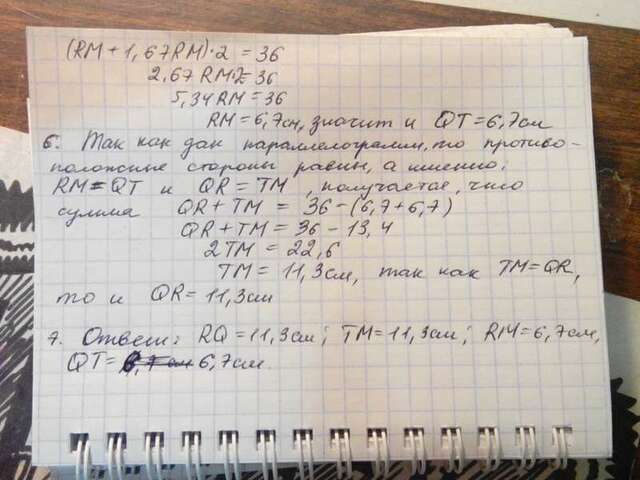 (RM + 1,67RM)·2 = 36
2,67 RM·2 = 36
5,34RM = 36
RM = 6,7см, значит и QT = 6,7см
6. Так как дан параллелограмм, то противо-
положные стороны равны, а именно:
RM = QT и QR = TM, получается, что
сумма QR + TM = 36 - (6,7 + 6,7)
QR + TM = 36 - 13,4
2TM = 22,6
TM = 11,3см, так как TM = QR,
то и QR = 11,3см
7. Ответ: RQ = 11,3см; TM = 11,3см; RM = 6,7см,
QT = 6,7см.